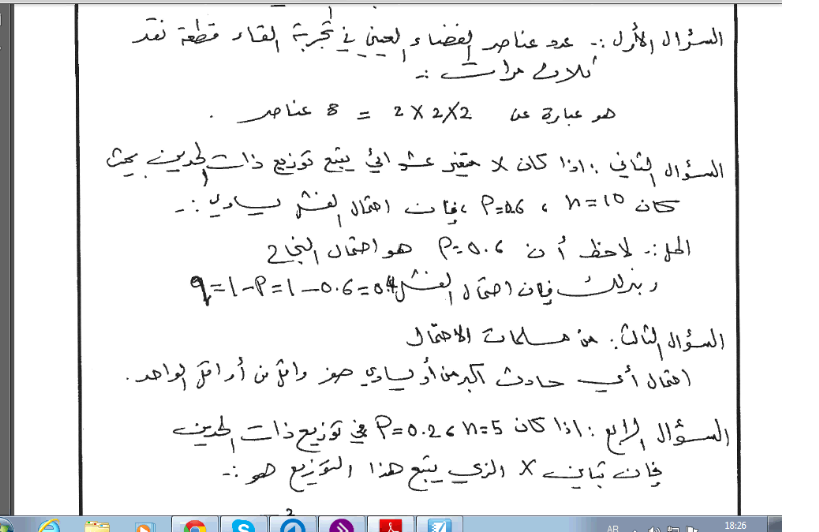 السؤال الأول :- عدد عناصر الفضاء العيني في تجربة القاء قطعة نقد
ثلاث مرات :-
هو عبارة عن 2×2×2 = 8 عناصر .
السؤال الثاني : اذا كان X متغير عشوائي يتبع توزيع ذات الحدين بحيث
كان n=10 ، P=0.6 ، فإن احتمال الفشل يساوي :-
الحل :- لاحظ أن P=0.6 هو احتمال النجاح
وبذلك فإن احتمال الفشل q=1-P=1-0.6=0.4
السؤال الثالث : من مسلمات الاحتمال
احتمال أي حادث أكبر من أو يساوي صفر واقل من أو الواحد .
السؤال الرابع : اذا كان n=5 ، P=0.2 في توزيع ذات الحدين
فإن تباين X الذي يتبع هذا التوزيع هو :-
AR
18:26